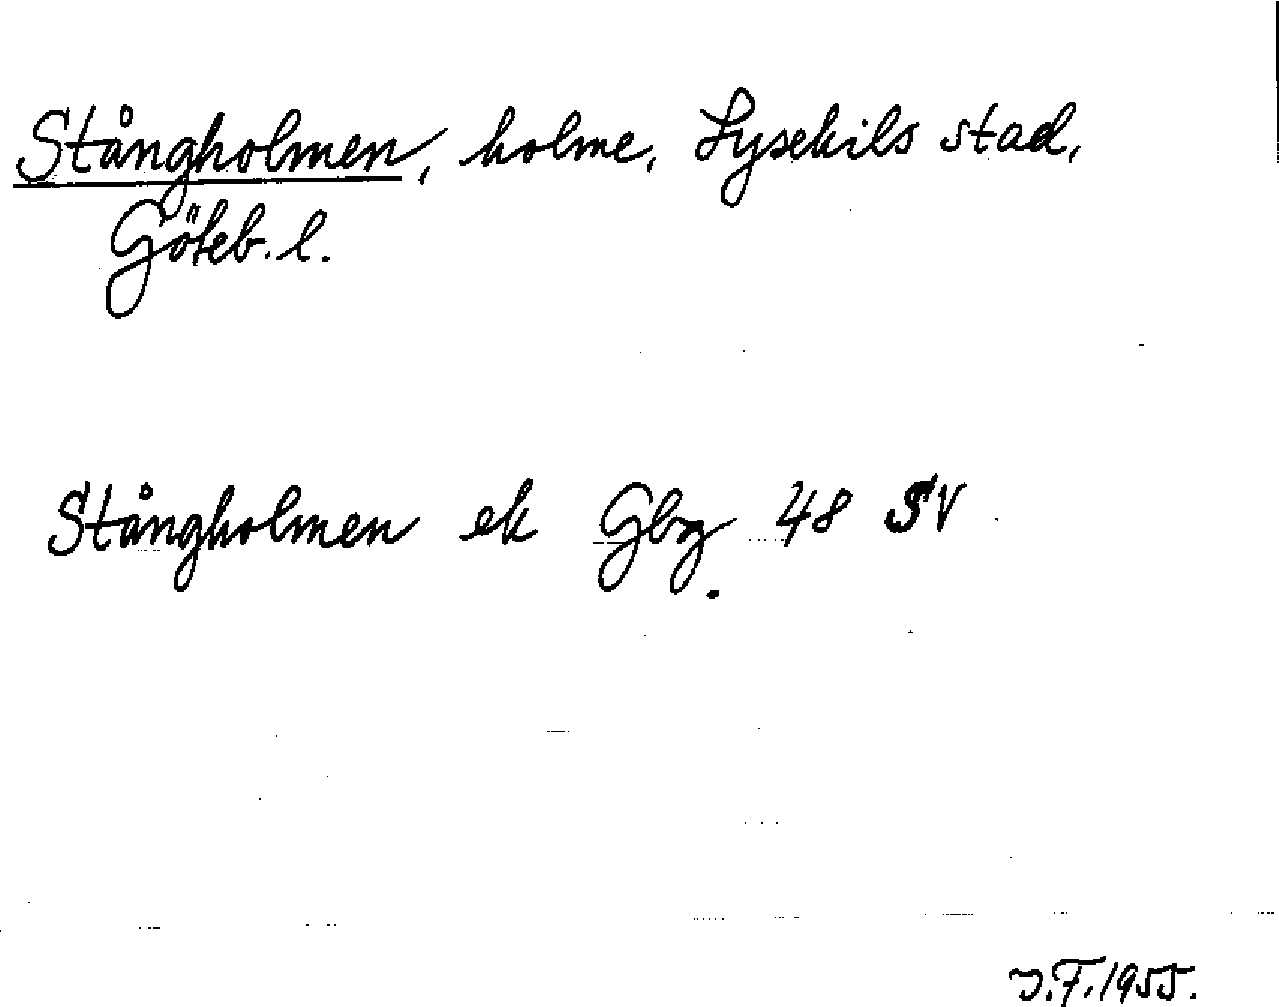 Stångholmen, holme, Lysekils stad,
Göteb. l.
Stångholmen ek Gbg 48 SV
J.F. 1955.